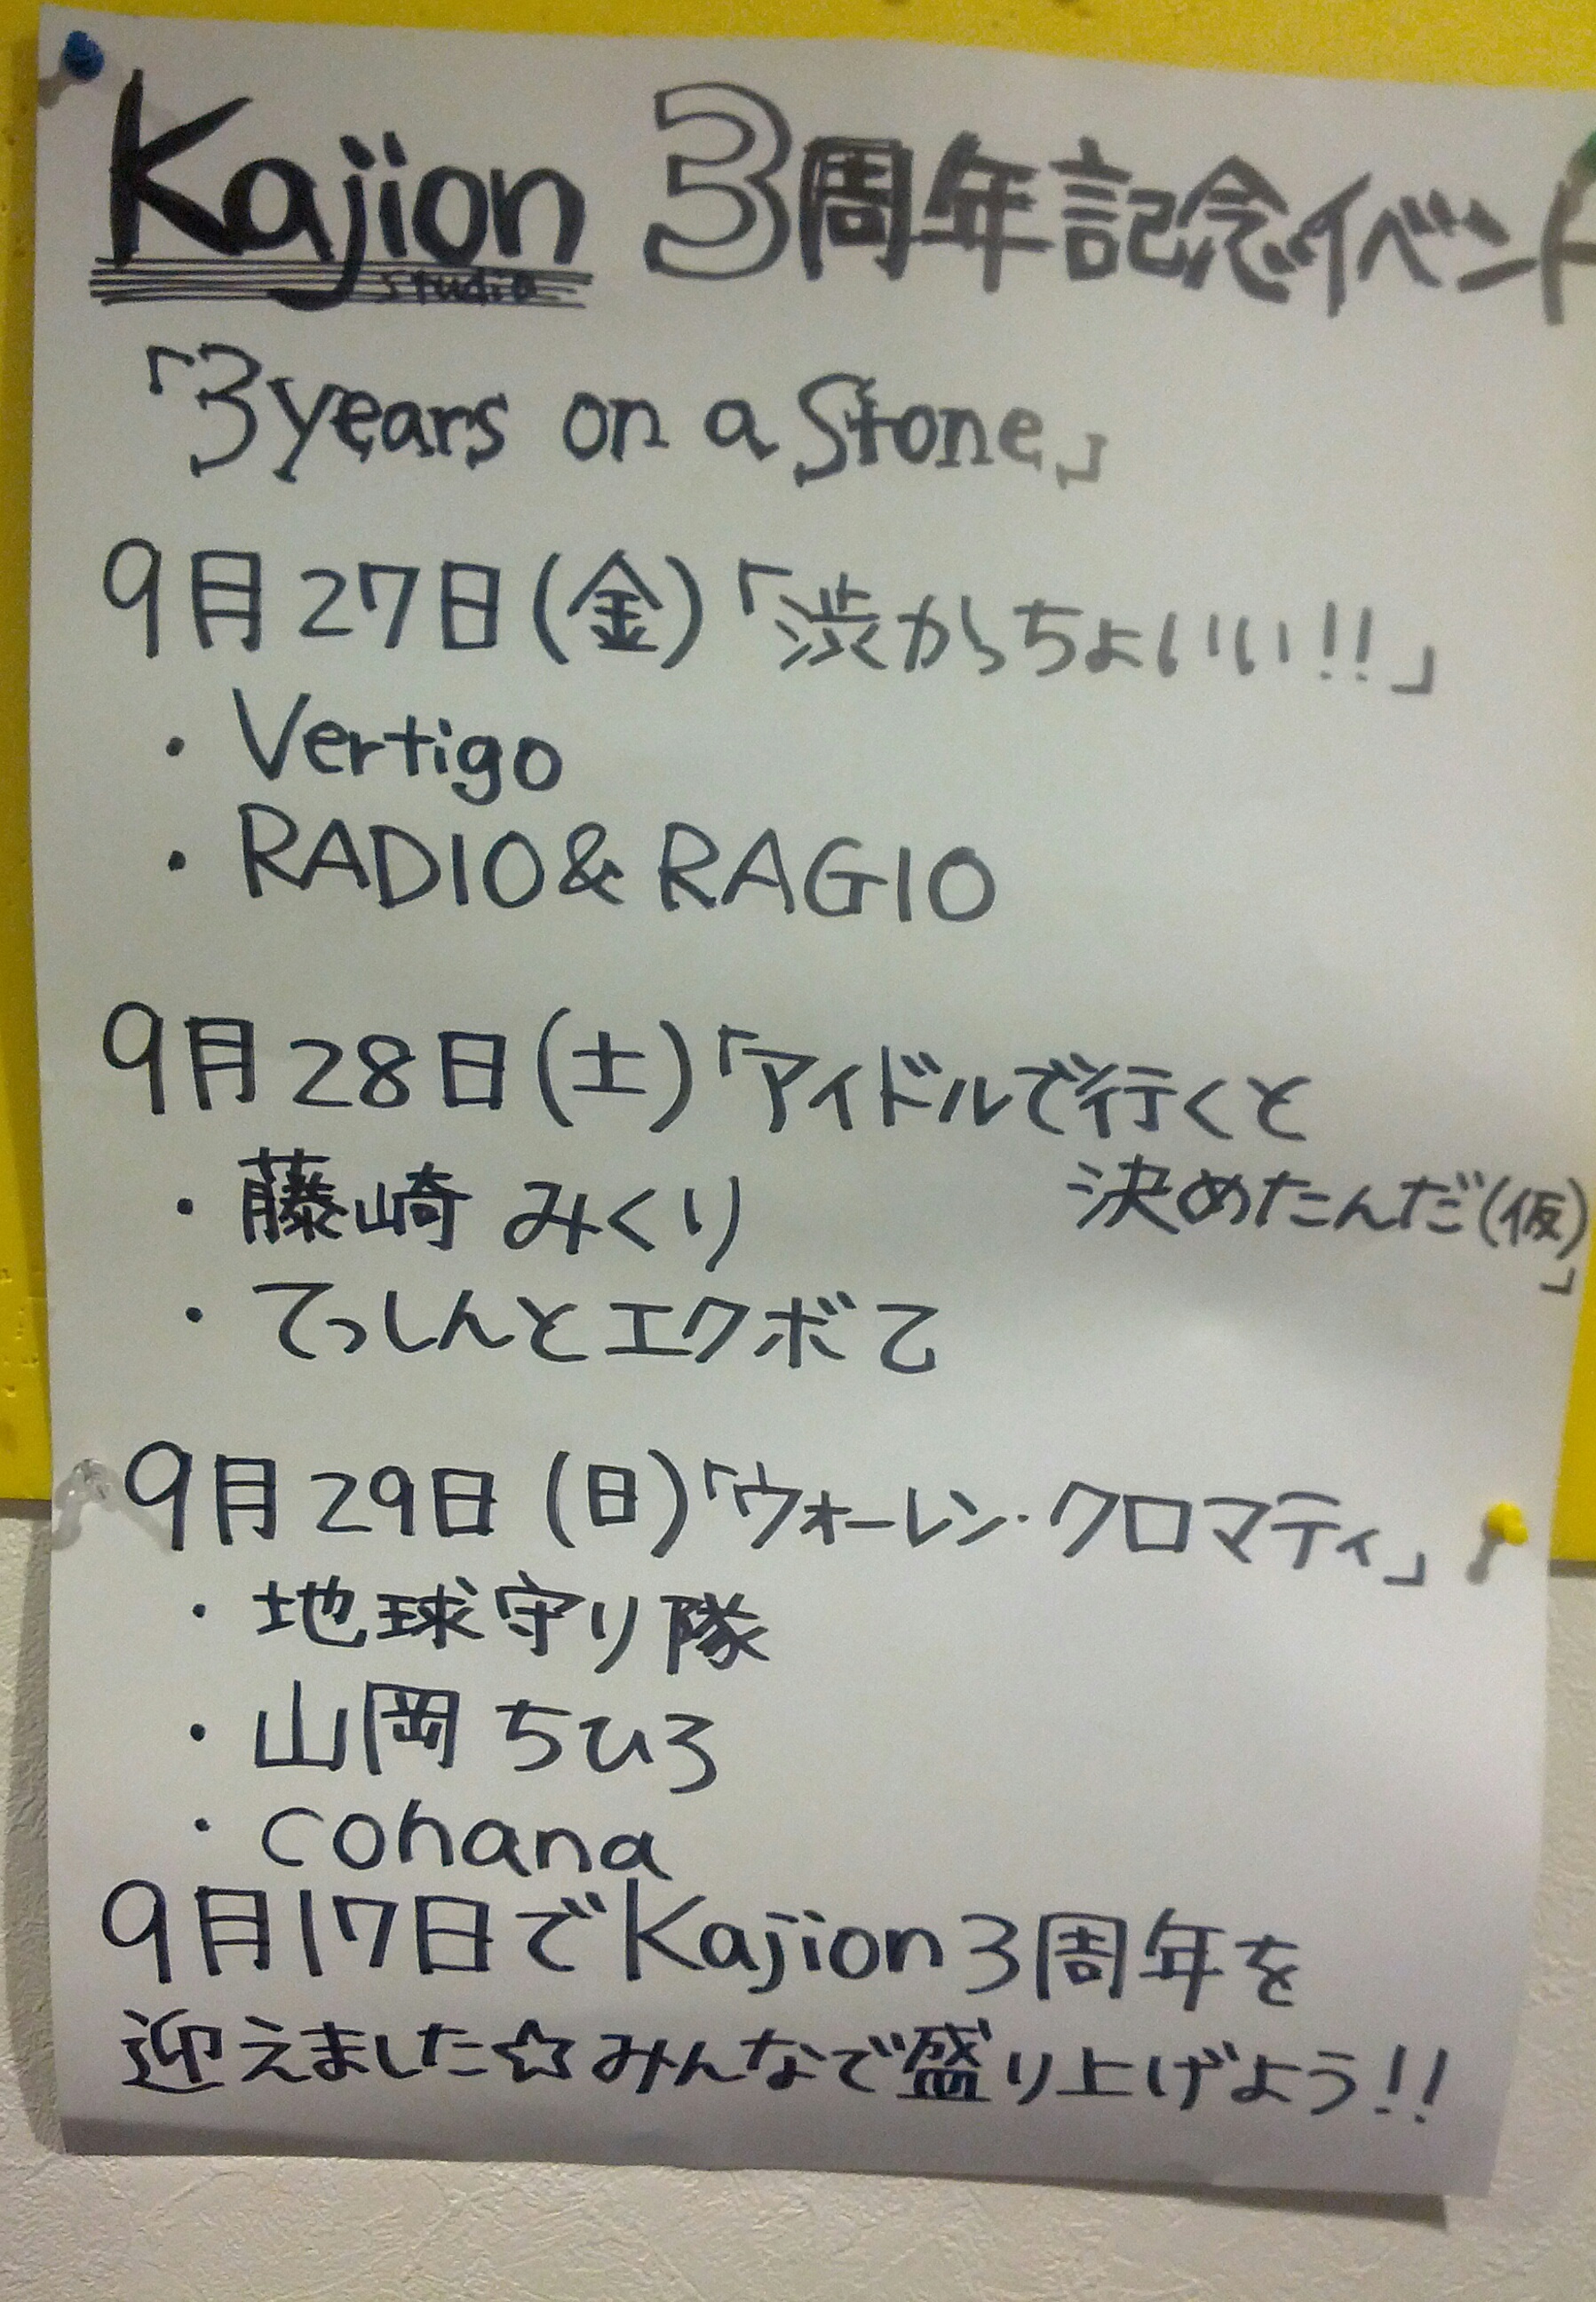 Kajion 3周年記念イベント
studio
「3years on a Stone」
9月27日(金)「渋からちょいいい!!」
・Vertigo
・RADIO&RAGIO
9月28日(土)「アイドルで行くと
決めたんだ(仮)」
・藤崎みくり
・てっしんとエクボて
9月29日(日)「ウォーレン・クロマティ」
・地球守り隊
・山岡ちひろ
・cohana
9月17日でKajion3周年を
迎えました☆みんなで盛り上げよう!!